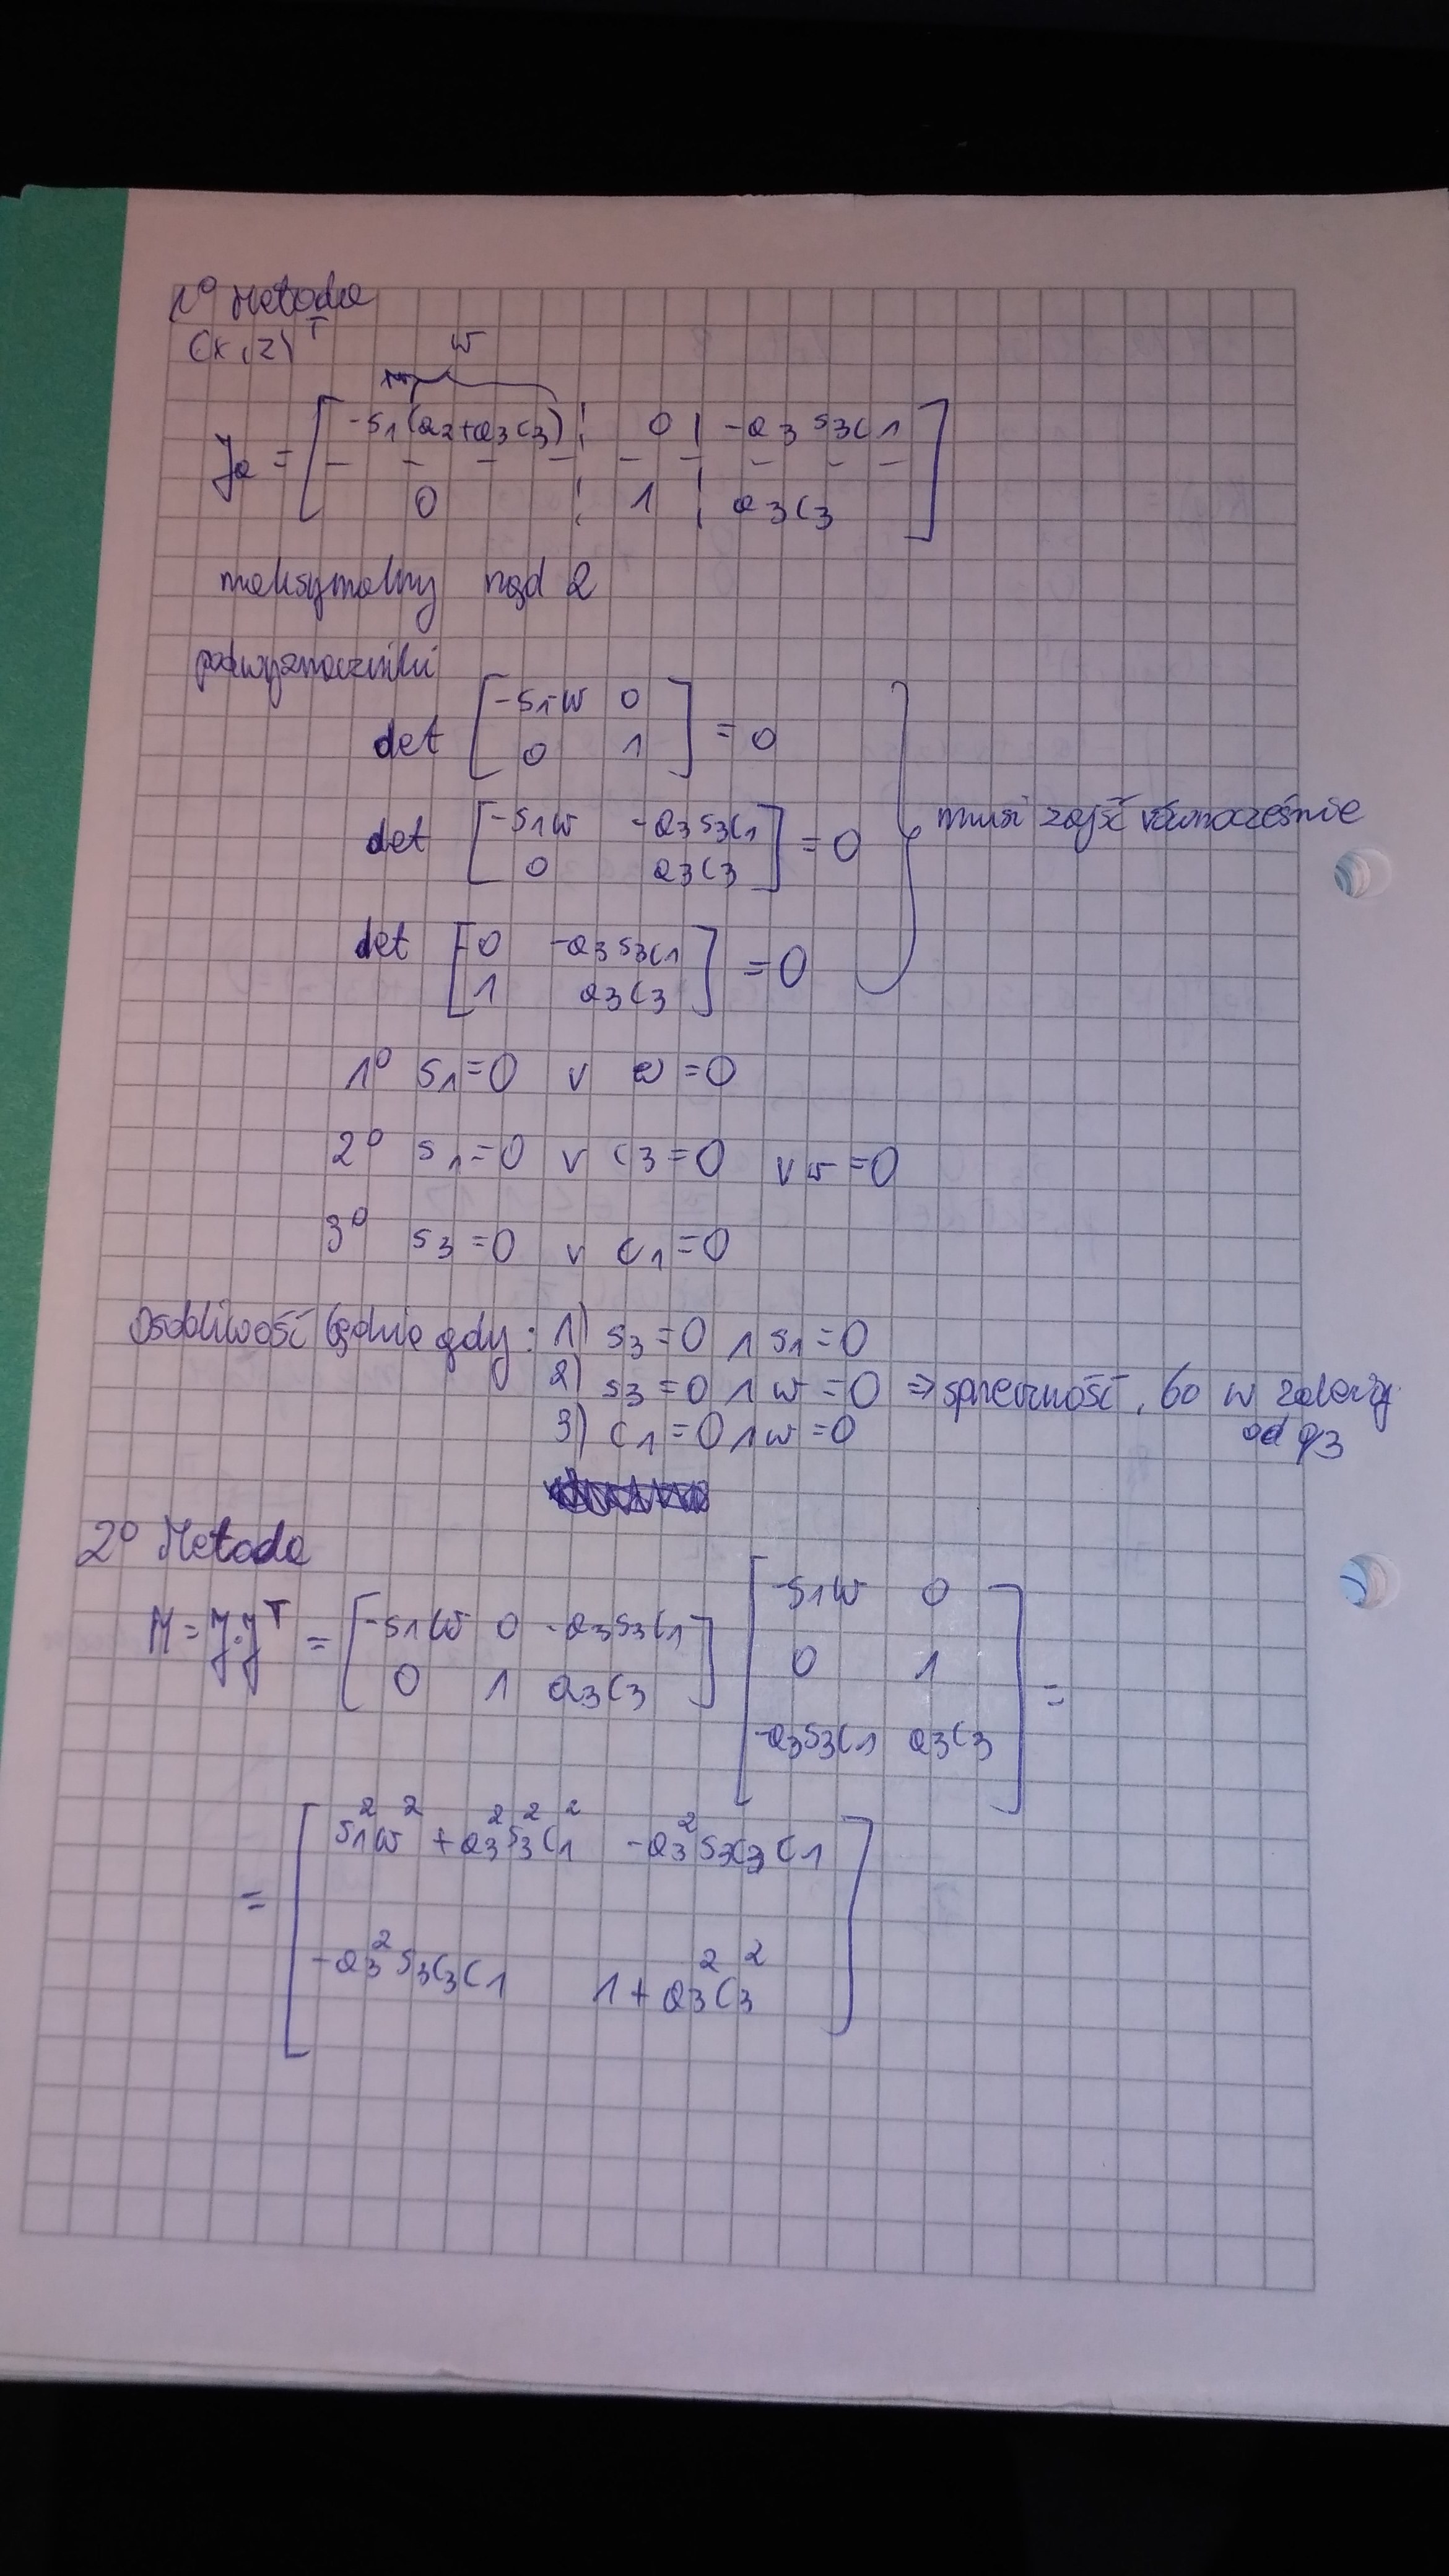 1° Metoda
(x, z)ᵀ
w
Ja = [ -s1(a2+a3c3) ¦ 0 ¦ -a3s3c1
0 ¦ 1 ¦ a3c3 ]
maksymalny rząd 2
podwyznaczniki
det [ -s1w 0
0 1 ] = 0
det [ -s1w -a3s3c1
0 a3c3 ] = 0
musi zajść równocześnie
det [ 0 -a3s3c1
1 a3c3 ] = 0
1° s1=0 v w=0
2° s1=0 v c3=0 v w=0
3° s3=0 v c1=0
Osobliwość będzie gdy: 1) s3=0 ∧ s1=0
2) s3=0 ∧ w=0 ⇒ sprzeczność, bo w zależy od q3
3) c1=0 ∧ w=0
2° Metoda
M = J·Jᵀ = [ -s1w 0 -a3s3c1
0 1 a3c3 ] [ -s1w 0
0 1
-a3s3c1 a3c3 ] =
= [ s1²w² + a3²s3²c1² -a3²s3c3c1
-a3²s3c3c1 1+a3²c3² ]